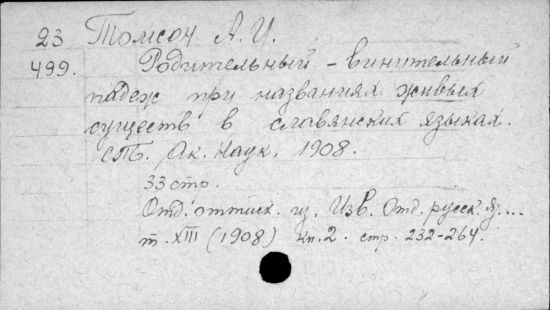 23 Томсон А. И.
499. Родительный - винительный
падеж при названиях живых
существ в славянских языках.
СПб. Ак. Наук, 1908.
33 стр.
Отд. оттиск. из. Изв. Отд. русск. яз. ...
т. XIII (1908) кн. 2. стр. 232-264.